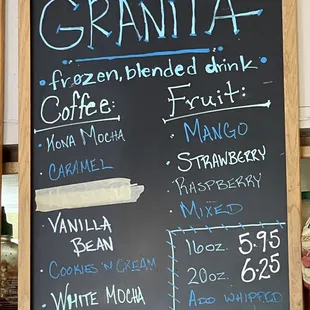 GRANITA
• frozen, blended drink •
Coffee:
• KONA MOCHA
• CARAMEL
• VANILLA
BEAN
• COOKIES 'N CREAM
• WHITE MOCHA
Fruit:
• MANGO
• STRAWBERRY
• RASPBERRY
• MIXED
16oz. 5.95
20oz. 6.25
ADD WHIPPED